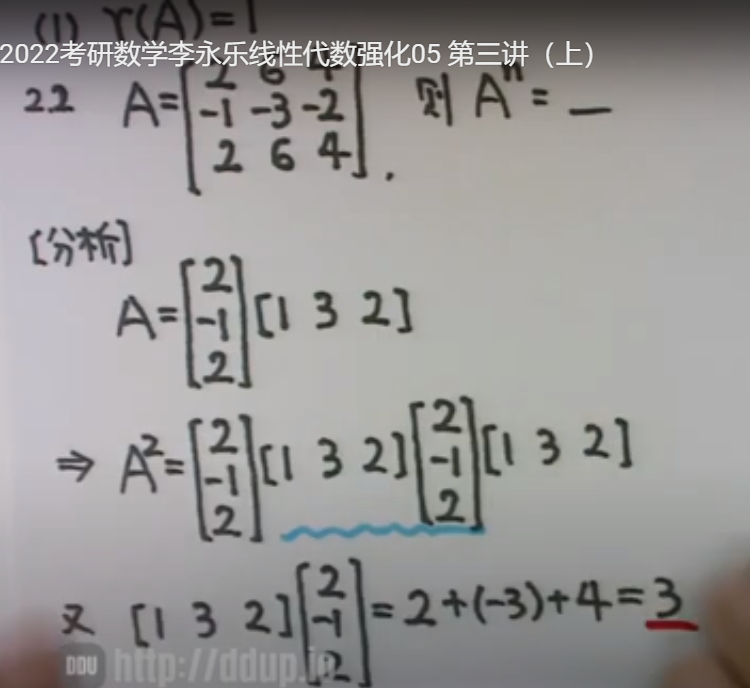 (1) r(A)=1
2022考研数学李永乐线性代数强化05 第三讲（上）
22 A=[2 6 4
-1 -3 -2
2 6 4]. 则 A^n = __
[分析]
A=[2
-1
2][1 3 2]
⇒ A²=[2
-1
2][1 3 2][2
-1
2][1 3 2]
又 [1 3 2][2
-1
2]=2+(-3)+4=3
DDU http://ddup.